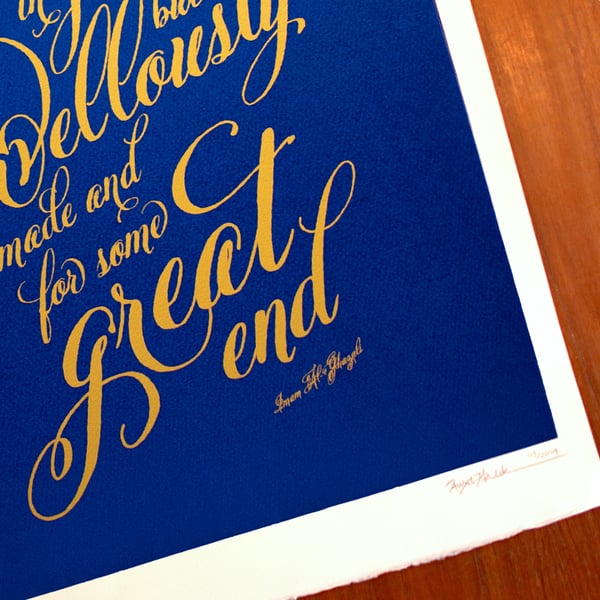 vellously
made and
for some
great
end
Imam Al-Ghazali